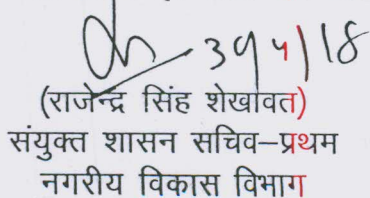 (राजेन्द्र सिंह शेखावत)
संयुक्त शासन सचिव–प्रथम
नगरीय विकास विभाग